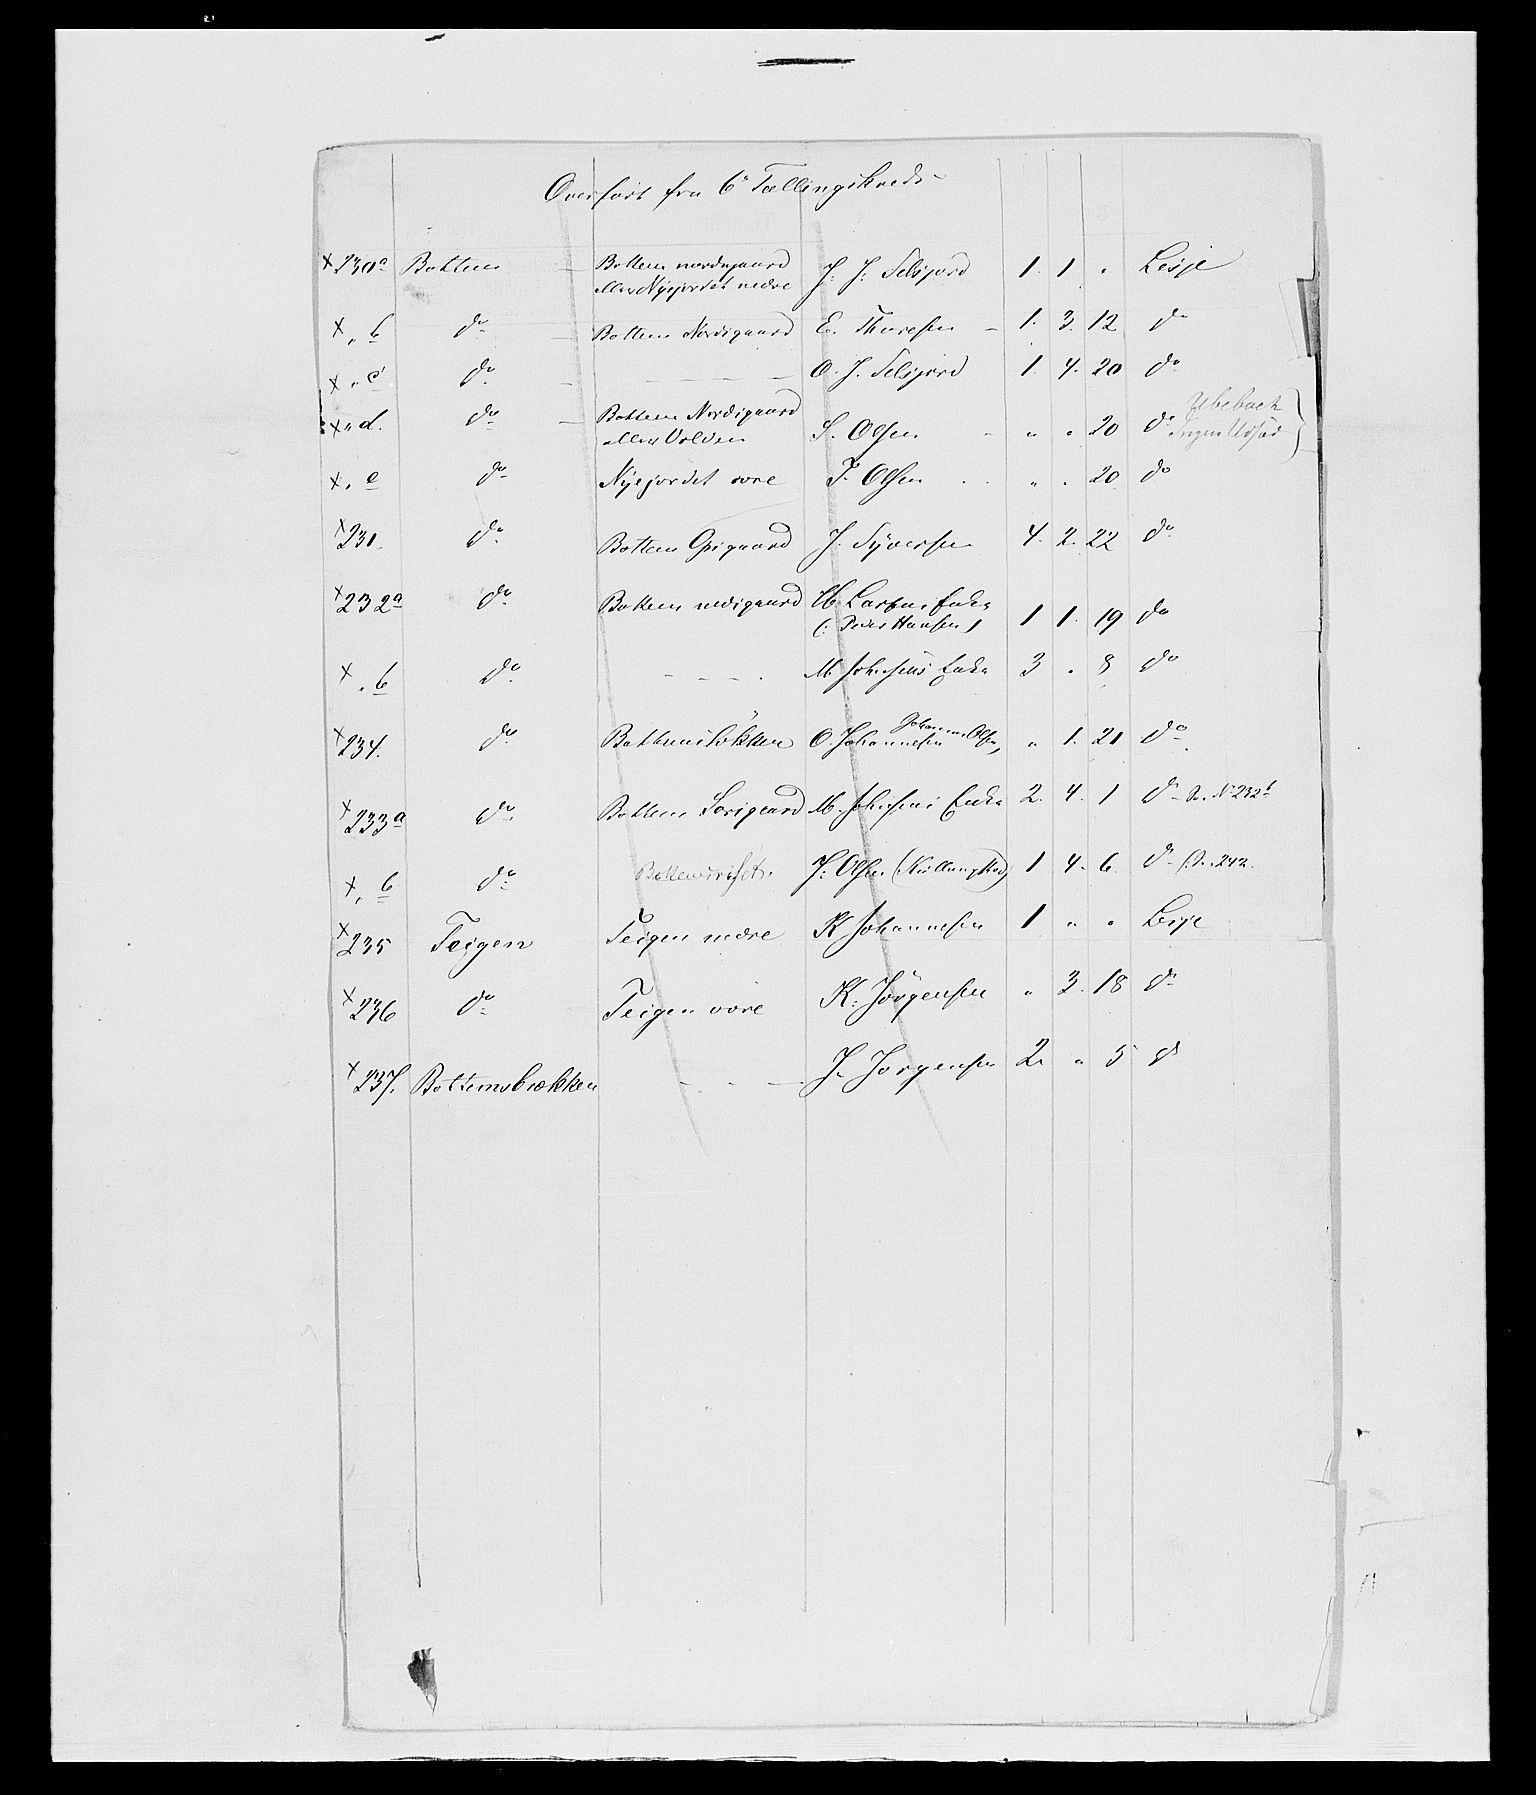 Overført fra 6te Tællingskreds
x 230a Bottem — Bottem nordigaard J. J. Selsjord 1. 1 „ Lesje
eller Nyejordet nedre
x „ b do — Bottem Nordigaard E. Thoresen — 1. 3. 12 do
x „ c do — — — — O. J. Selsjord 1. 4. 20 do
x „ d. do — Bottem Nordigaard S. Olsen - „ „ 20 do Ubeboet
eller Volden Ingen Udsæd
x „ e do Nyejordet øvre J. Olsen „ „ 20 do
x 231. do Bottem Opigaard J. Syversen 4. 2. 22 do
x 232a do Bottem nedigaard Larsens Enke 1 1. 19 do
(: Peder Hansen)
x „ b do - - - - M. Johnsens Enke 3 „ 8 do
Johannes Olsen
x 234. do Bottemsløkken O. Johannesen „ 1. 21 do
x 233a do Bottem Sørigaard M. Johnsens Enke 2. 4. 1 do S. No 232b
x „ b do Bottem J. Olsen 1 4. 6. do S. 242.
x 235 Teigen Teigen nedre K Johannesen 1 „ „ Lesje
x 236 do Teigen øvre K. Jörgensen „ 3. 18 do
x 237. Bottemsbrækken - - — J. Jorgensen 2. „ 5 do